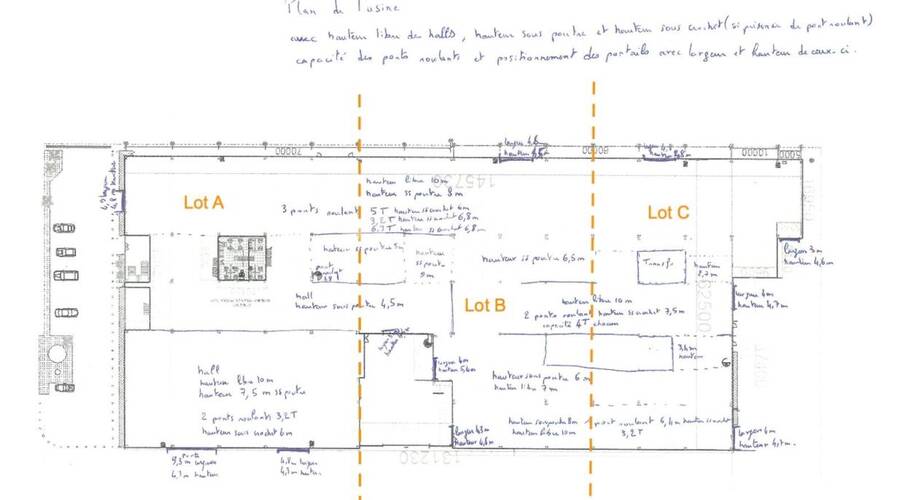 Plan de l'usine
avec hauteur libre des halls, hauteur sous poutre et hauteur sous crochet (si présence de pont roulant)
capacité des ponts roulants et positionnement des portails avec largeur et hauteur de ceux-ci.
70000
80000
10000
5000
largeur 4,8
hauteur
hauteur 4,8m
4,8m
Lot A
hauteur libre 10m
145730
hauteur ss poutre 8m
3 ponts roulant 5T hauteur ss crochet 6m
3,2T hauteur ss crochet 6,8m
6.3T hauteur ss crochet 6,8m
Lot C
largeur 3m
hauteur 4,6m
hauteur ss poutre 5m
hauteur
ss poutre
5m
hauteur ss poutre 6,5m
Transfo
hauteur
2,7m
hall
hauteur sous poutre 4,5m
Lot B
hauteur libre 10m
2 ponts roulant hauteur ss crochet 7,5m
capacité 4T chacun
62500
largeur 6m
hauteur 4,7m
3,4m
hauteur
hall
hauteur libre 10m
hauteur 7,5m ss poutre
2 ponts roulants 3,2T
hauteur sous crochet 6m
largeur 4m
hauteur
hauteur sous poutre 6m
hauteur libre 7m
hauteur libre 10m
pont roulant 6,4m hauteur ss crochet
3,2T
largeur 6m
hauteur 4,7m
Porte
largeur
4,7m hauteur
4,8m largeur
4,7m hauteur
131230